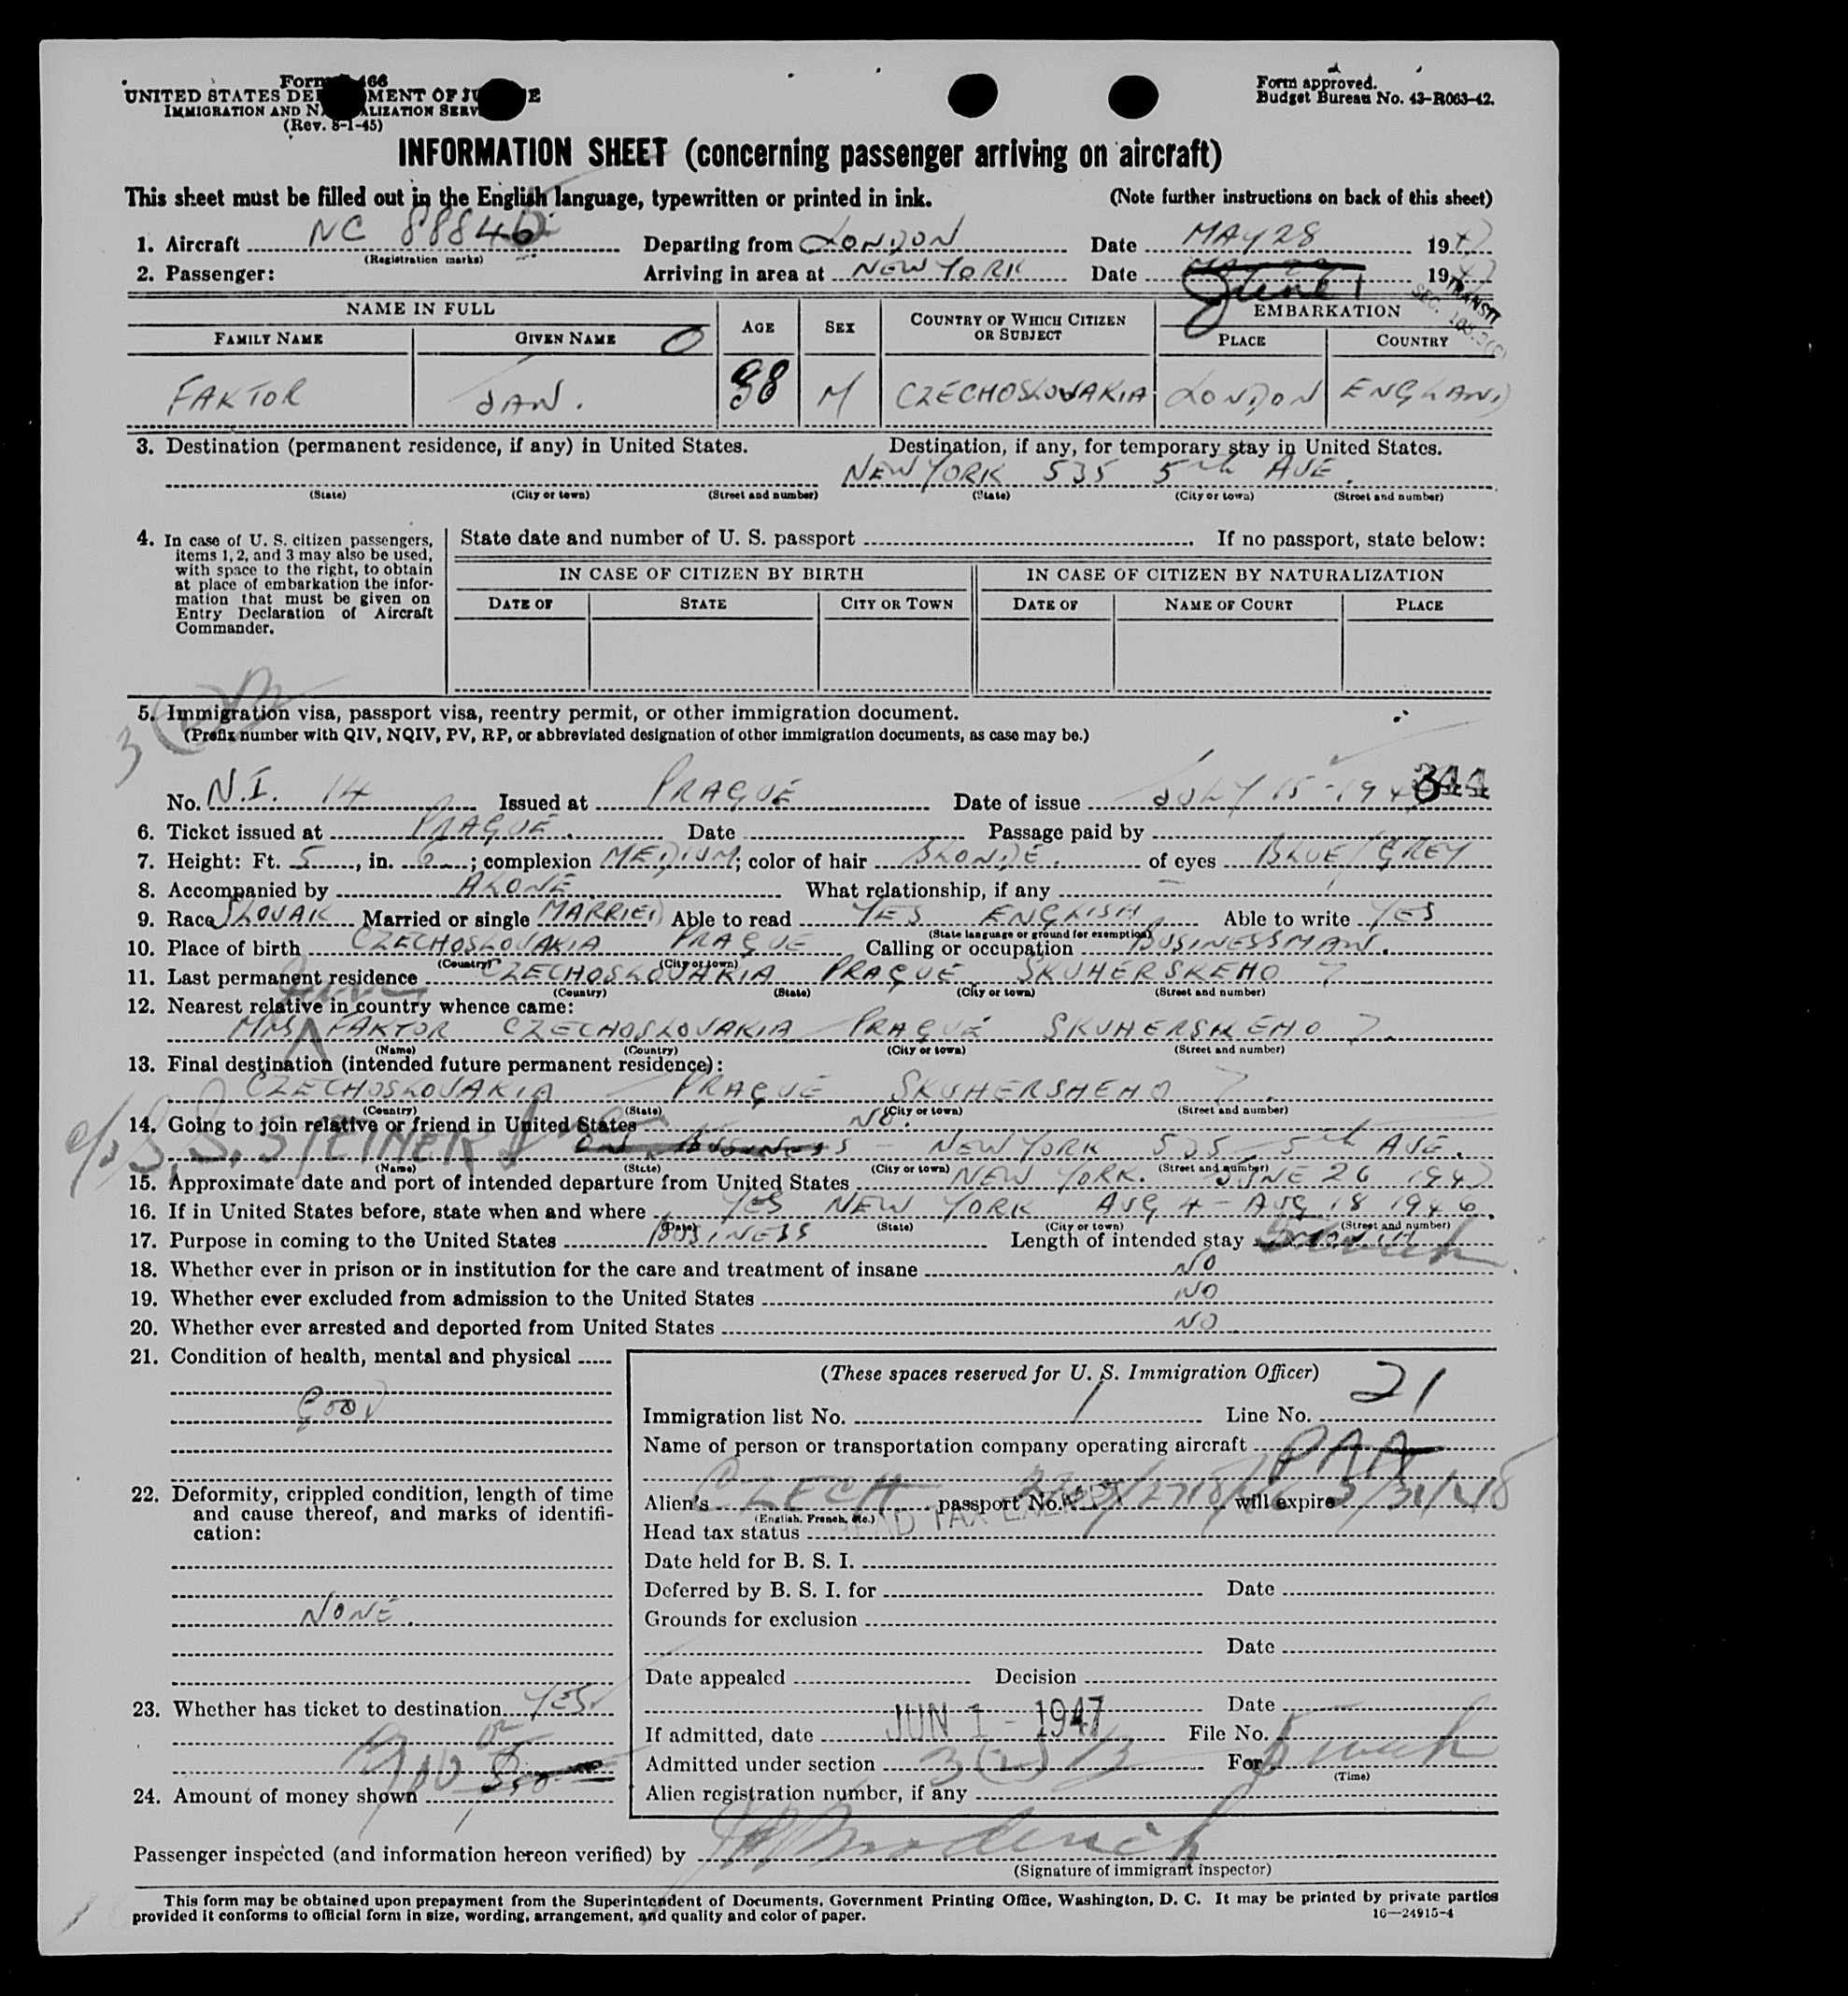 Form 466
UNITED STATES DEPARTMENT OF JUSTICE
IMMIGRATION AND NATURALIZATION SERVICE
(Rev. 8-1-45)
Form approved.
Budget Bureau No. 43-R063-42.
INFORMATION SHEET (concerning passenger arriving on aircraft)
This sheet must be filled out in the English language, typewritten or printed in ink. (Note further instructions on back of this sheet)
1. Aircraft NC 88846 Departing from LONDON Date MAY 28 1947
(Registration marks)
2. Passenger: Arriving in area at NEW YORK Date June 1 1947
TRANSIT
NAME IN FULL AGE SEX COUNTRY OF WHICH CITIZEN OR SUBJECT EMBARKATION
FAMILY NAME GIVEN NAME PLACE COUNTRY
FAKTOR JAN. 38 M CZECHOSLOVAKIA LONDON ENGLAND
3. Destination (permanent residence, if any) in United States. Destination, if any, for temporary stay in United States.
NEW YORK 535 5th AVE.
(State) (City or town) (Street and number) (State) (City or town) (Street and number)
4. In case of U. S. citizen passengers, items 1, 2, and 3 may also be used, with space to the right, to obtain at place of embarkation the information that must be given on Entry Declaration of Aircraft Commander.
State date and number of U. S. passport . If no passport, state below:
IN CASE OF CITIZEN BY BIRTH IN CASE OF CITIZEN BY NATURALIZATION
DATE OF STATE CITY OR TOWN DATE OF NAME OF COURT PLACE
5. Immigration visa, passport visa, reentry permit, or other immigration document.
(Prefix number with QIV, NQIV, PV, RP, or abbreviated designation of other immigration documents, as case may be.)
344
No. N.I. 14 Issued at PRAGUE Date of issue JULY 15 - 194
6. Ticket issued at PRAGUE. Date Passage paid by
7. Height: Ft. 5, in. 6; complexion MEDIUM; color of hair BLONDE. of eyes BLUE/GREY
8. Accompanied by ALONE What relationship, if any –
9. Race SLOVAK Married or single MARRIED Able to read YES ENGLISH Able to write YES
(State language or ground for exemption)
10. Place of birth CZECHOSLOVAKIA PRAGUE Calling or occupation BUSINESSMAN.
(Country) (City or town)
11. Last permanent residence CZECHOSLOVAKIA PRAGUE SKUHERSKEHO 7
(Country) (State) (City or town) (Street and number)
12. Nearest relative in country whence came:
MRS FAKTOR CZECHOSLOVAKIA PRAGUE SKUHERSKEHO 7.
(Name) (Country) (City or town) (Street and number)
13. Final destination (intended future permanent residence):
CZECHOSLOVAKIA – PRAGUE SKUHERSHEHO 7.
(Country) (State) (City or town) (Street and number)
14. Going to join relative or friend in United States NO.
c/o S. S. STEINER ON BUSINESS – NEW YORK 535 – 5th AVE.
(Name) (State) (City or town) (Street and number)
15. Approximate date and port of intended departure from United States NEW YORK. JUNE 26 1947
16. If in United States before, state when and where YES NEW YORK AUG 4 – AUG 18 1946.
(Date) (State) (City or town) (Street and number)
17. Purpose in coming to the United States BUSINESS Length of intended stay
18. Whether ever in prison or in institution for the care and treatment of insane NO
19. Whether ever excluded from admission to the United States NO
20. Whether ever arrested and deported from United States NO
21. Condition of health, mental and physical
GOOD
22. Deformity, crippled condition, length of time and cause thereof, and marks of identification:
NONE.
23. Whether has ticket to destination YES.
24. Amount of money shown
(These spaces reserved for U. S. Immigration Officer)
Immigration list No. 1 Line No. 21
Name of person or transportation company operating aircraft PAA
Alien's CZECH passport No. will expire 3/31/48
(English, French, etc.)
Head tax status HEAD TAX EXEMPT
Date held for B. S. I.
Deferred by B. S. I. for Date
Grounds for exclusion
Date
Date appealed Decision
Date
If admitted, date JUN 1 - 1947 File No.
Admitted under section 3(2) For
(Time)
Alien registration number, if any
Passenger inspected (and information hereon verified) by
(Signature of immigrant inspector)
This form may be obtained upon prepayment from the Superintendent of Documents, Government Printing Office, Washington, D. C. It may be printed by private parties
provided it conforms to official form in size, wording, arrangement, and quality and color of paper. 16—24915-4